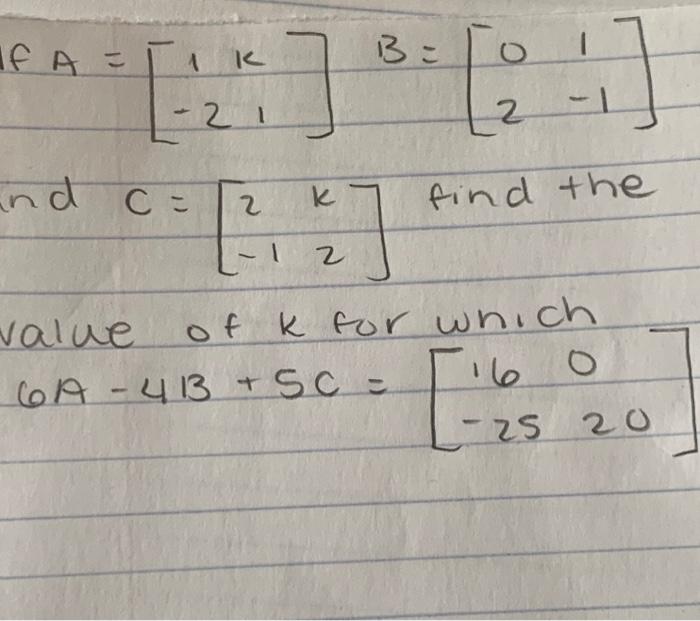 If A = [ 1 k B = [ 0 1
-2 1 ] 2 -1 ]
and C = [ 2 k find the
-1 2 ]
value of k for which
6A - 4B + 5C = [ 16 0
-25 20 ]